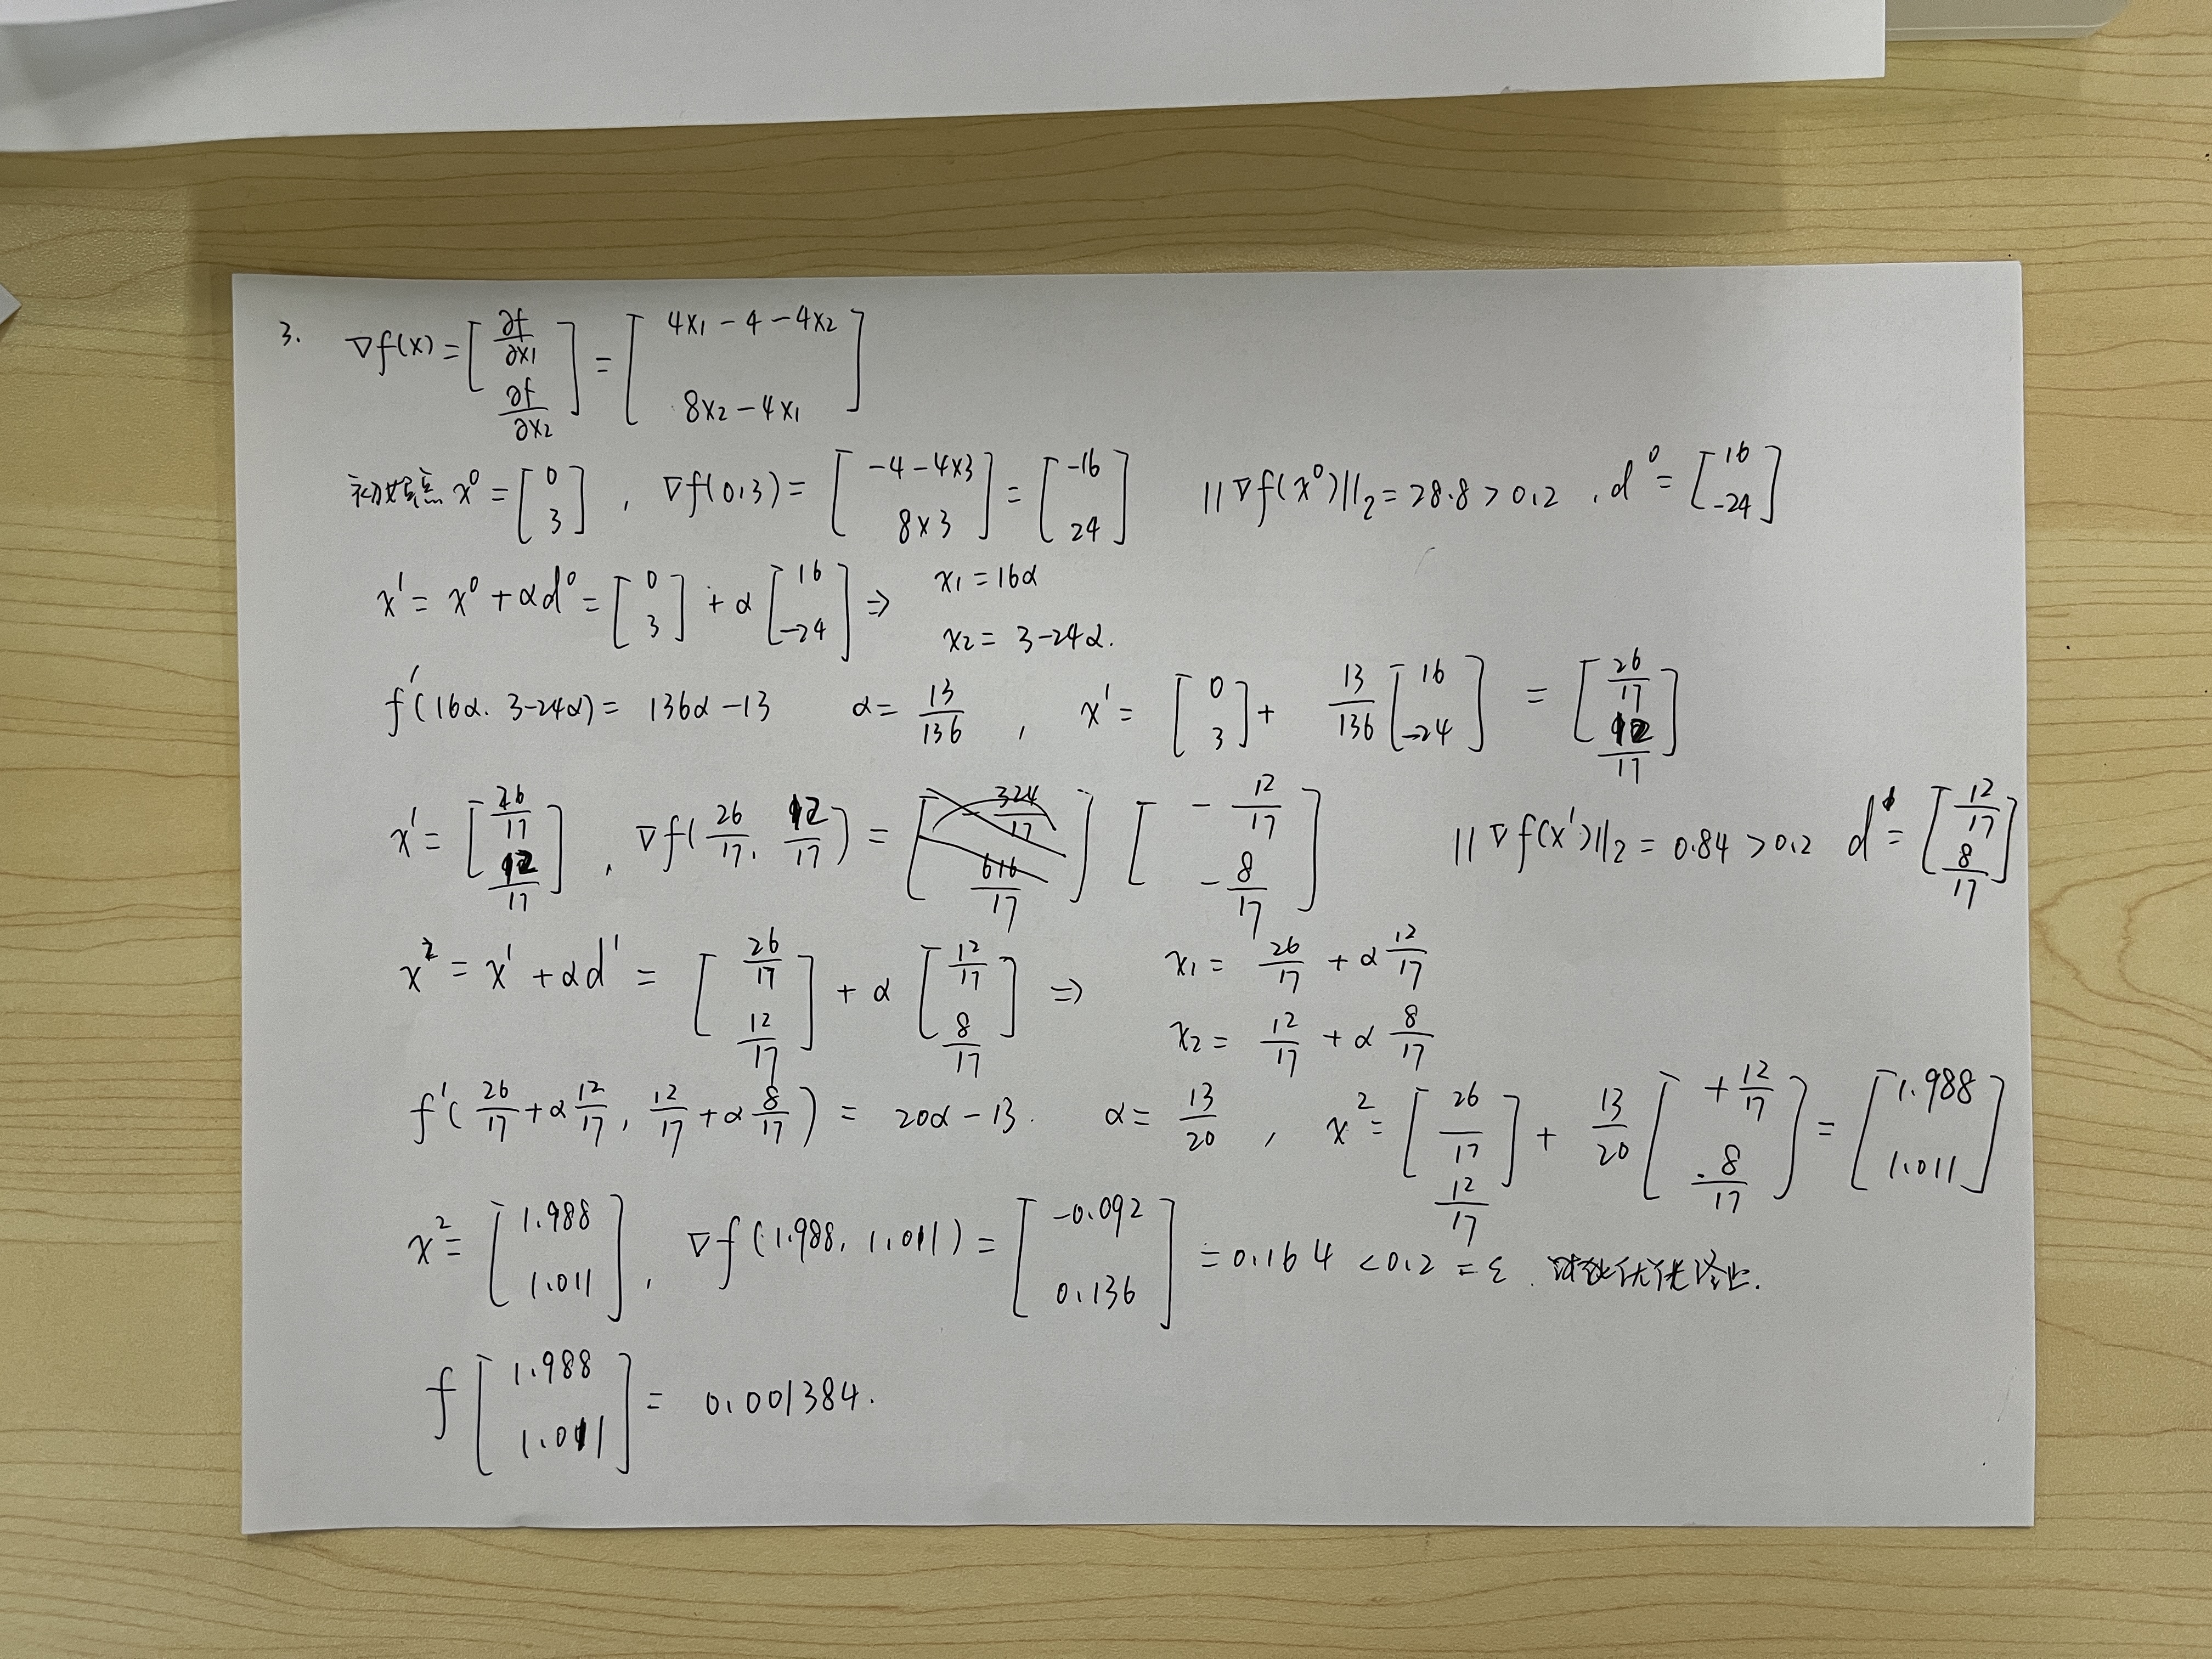 3. ∇f(x) = [∂f/∂x1 ∂f/∂x2] = [4x1 - 4 - 4x2 8x2 - 4x1]
初始点 x^0 = [0 3], ∇f(0,3) = [-4-4×3 8×3] = [-16 24] ||∇f(x^0)||2 = 28.8 > 0.2, d^0 = [16 -24]
x^1 = x^0 + αd^0 = [0 3] + α[16 -24] ⇒ x1 = 16α x2 = 3-24α.
f'(16α. 3-24α) = 136α - 13 α = 13/136, x^1 = [0 3] + 13/136 [16 -24] = [26/17 12/17]
x^1 = [26/17 12/17], ∇f(26/17, 12/17) = [-12/17 -8/17] ||∇f(x^1)||2 = 0.84 > 0.2 d^1 = [12/17 8/17]
x^2 = x^1 + αd^1 = [26/17 12/17] + α[12/17 8/17] ⇒ x1 = 26/17 + α 12/17 x2 = 12/17 + α 8/17
f'(26/17 + α 12/17, 12/17 + α 8/17) = 20α - 13. α = 13/20, x^2 = [26/17 12/17] + 13/20 [+12/17 8/17] = [1.988 1.011]
x^2 = [1.988 1.011], ∇f(1.988, 1.011) = [-0.092 0.136] = 0.164 < 0.2 = ε.
f[1.988 1.011] = 0.001384.